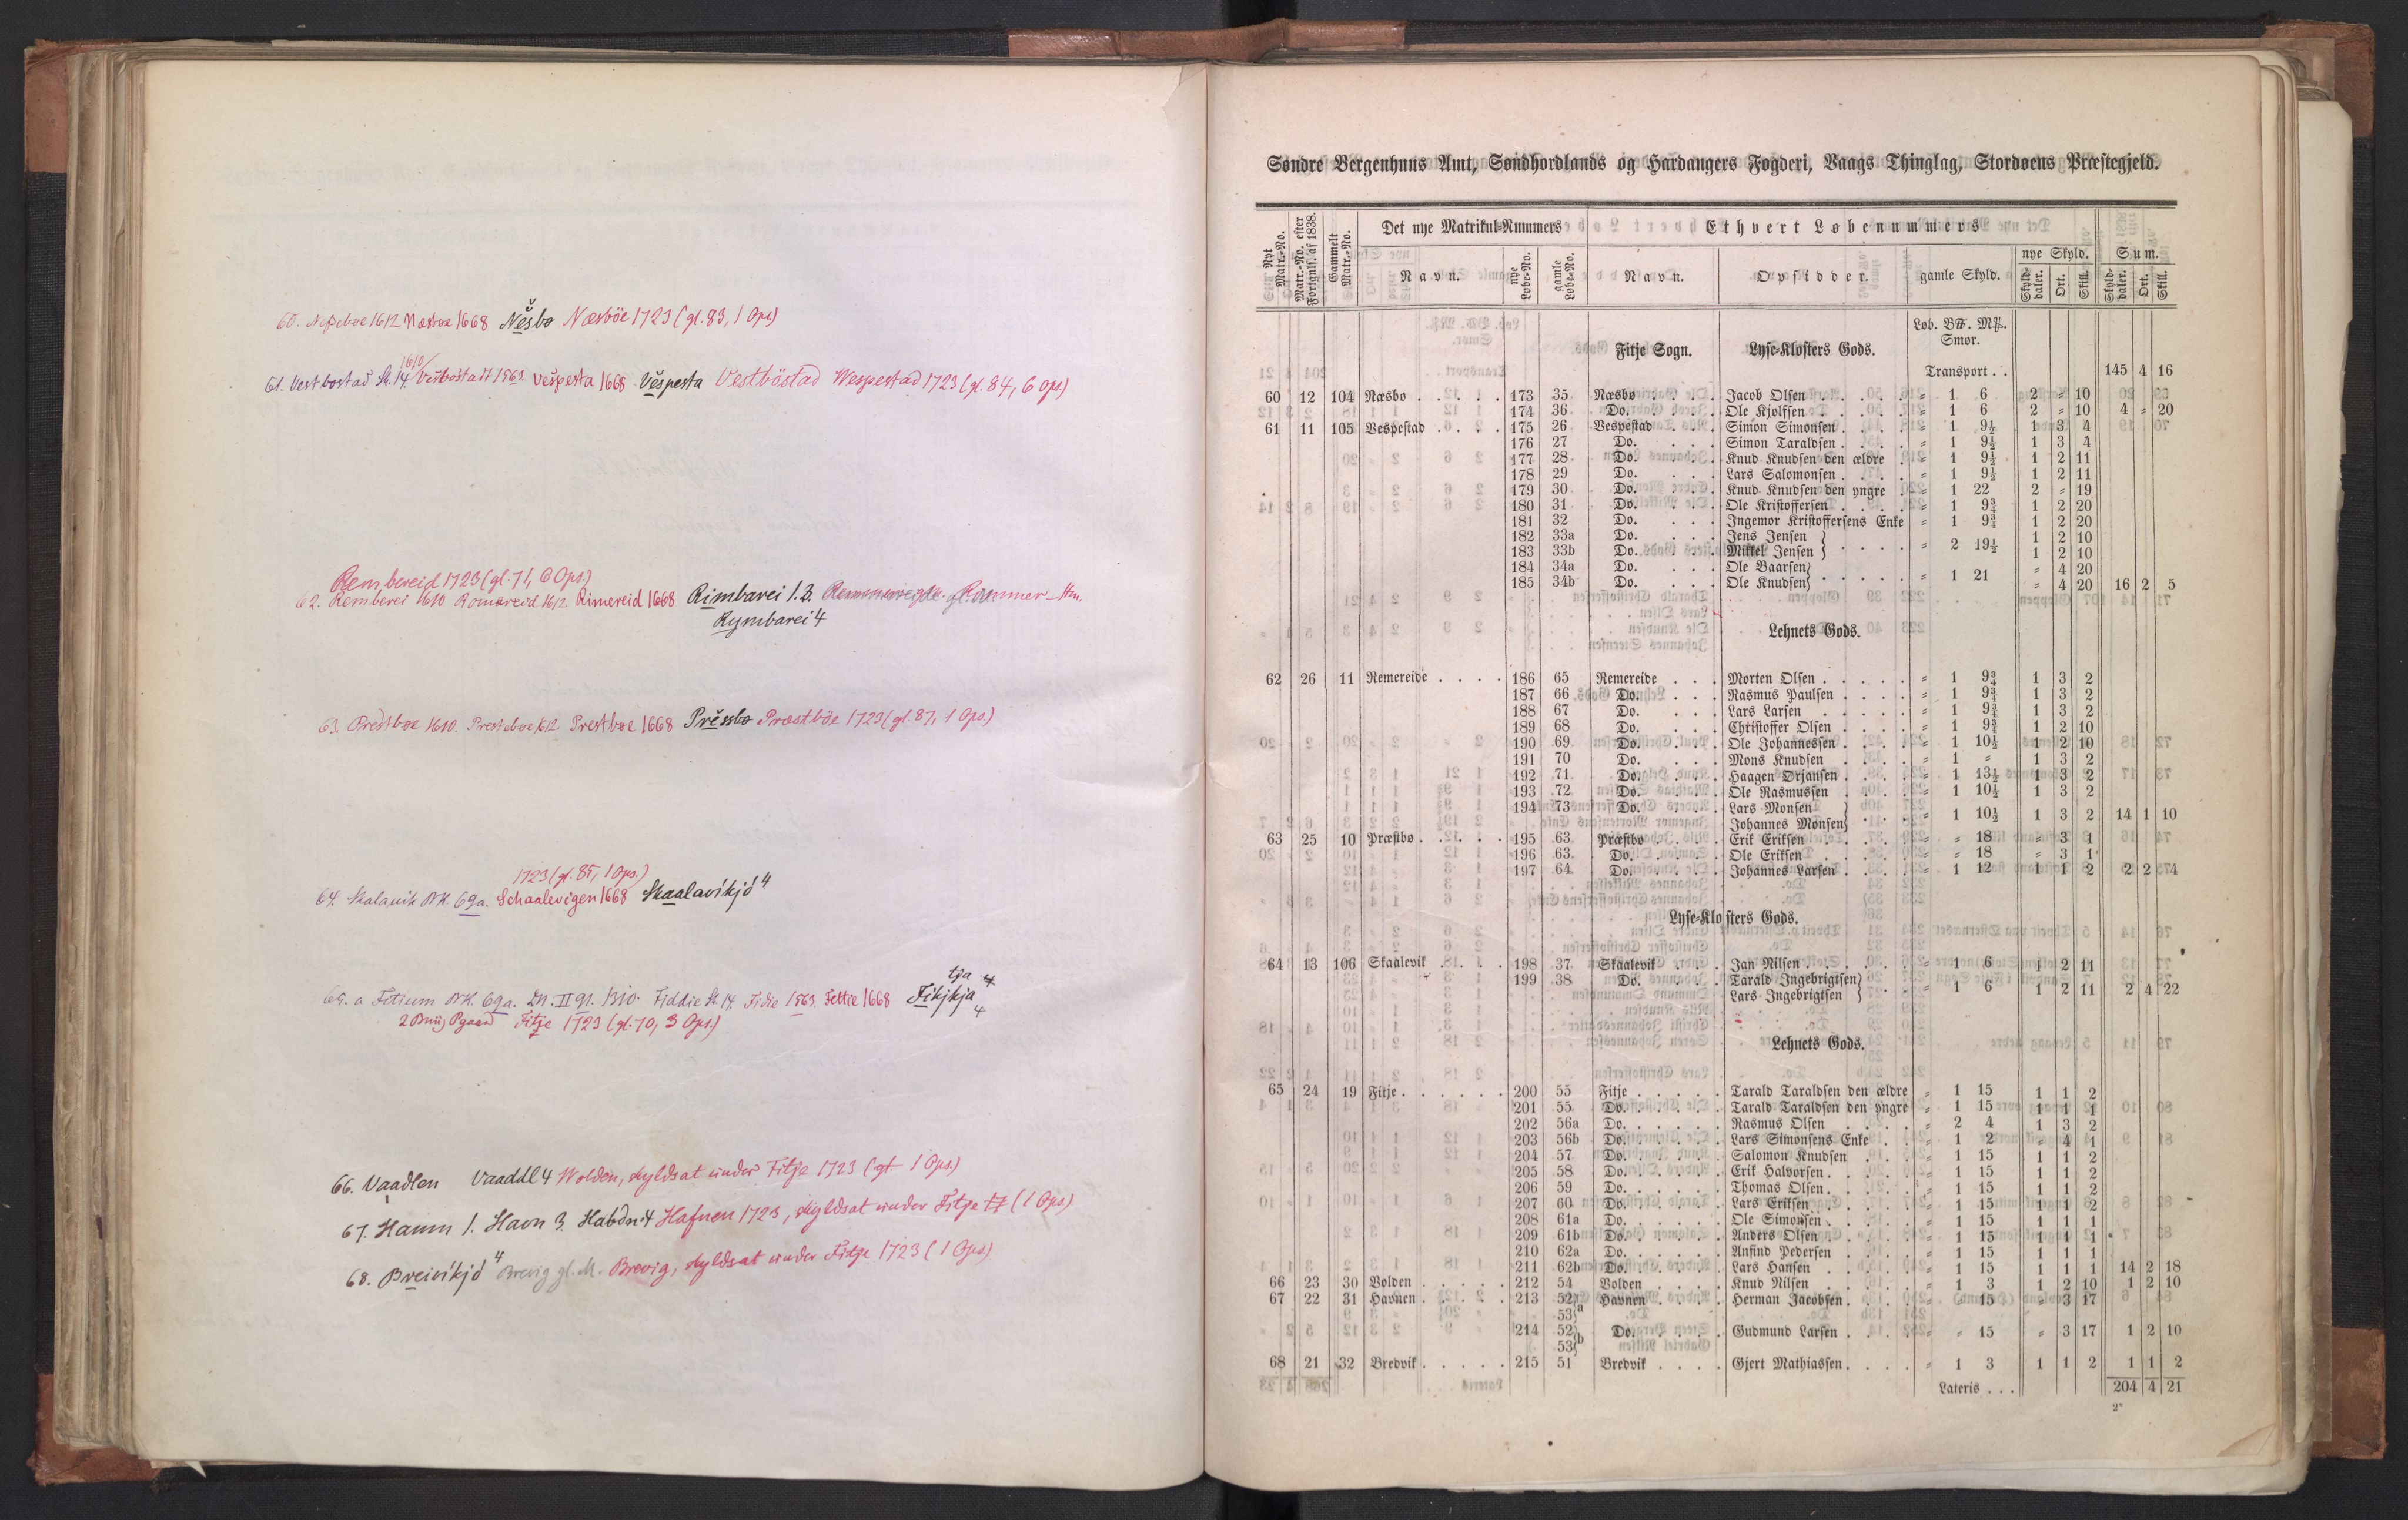 60. Nesseboe 1612 Næsboe 1668 Nesbø Næsböe 1723 (gl. 83, 1 Ops)
1610
61. Vestbostad St. 14 Vestbøstadt 1563. Vespesta 1668. Vespesta Vestböstad Wespestad 1723 (gl. 84, 6 Ops)
Rembereid 1723 (gl. 71, 6 Ops.)
62. Remberei 1610 Romereid 1612 Rimereid 1668 Rimbarei 1.3.
Rymbarei 4
63. Prestboe 1610. Presteboe 1612 Prestboe 1668 Pressbø Præstböe 1723 (gl. 87, 1 Ops.)
1723 (gl. 85, 1 Ops.)
64. Skalauik BK. 69a. Schaalevigen 1668 Skaalavikjó 4
tja 4
65. a Fitium BK. 69a. Dn. II 91. 1310. Fiddie St. 14. Fidie 1563 Fettie 1668 Fikjkja 4
Fitje 1723 (gl. 70, 3 Ops.)
66. Vaadlen Vaaddl 4 Wolden, skyldsat under Fitje 1723 (gl 1 Ops.)
67. Hamn 1. Havn 3. Habdn 4 Hafnen 1723, skyldsat under Fitje (1 Ops)
68. Breivikjó 4 Brevig gl. M. Brevig, skyldsat under Fitje 1723 (1 Ops)
Søndre Bergenhuus Amt, Søndhordlands og Hardangers Fogderi, Vaags Thinglag, Stordøens Præstegjeld.
Nyt Matr.-No. Matr.-No. efter Fortgnls. af 1838. Gammelt Matr.-No. Det nye Matrikul-Nummers Ethvert Løbenummers
Navn. nye Løbe-No. gamle Løbe-No. Navn. Opsidder. gamle Skyld. nye Skyld. Sum.
Skylddaler. Ort. Skill. Skylddaler. Ort. Skill.
Løb. B℔. M℔.
Smør.
Fitje Sogn. Lyse-Klosters Gods.
Transport . . 145 4 16
60 12 104 Næsbø . . . . . 173 35 Næsbø . . . . Jacob Olsen . . . . . = 1 6 2 = 10
174 36 Do. . . . . Ole Kjølfsen . . . . . = 1 6 2 = 10 4 = 20
61 11 105 Vespestad . . . . 175 26 Vespestad . . . Simon Simonsen . . . . = 1 9½ 1 3 4
176 27 Do. . . . Simon Taraldsen . . . . = 1 9½ 1 3 4
177 28 Do. . . . Knud Knudsen den ældre . = 1 9½ 1 2 11
178 29 Do. . . . Lars Salomonsen . . . . = 1 9½ 1 2 11
179 30 Do. . . . Knud Knudsen den yngre . = 1 22 2 = 19
180 31 Do. . . . Ole Kristoffersen . . . . = 1 9¾ 1 2 20
181 32 Do. . . . Ingemor Kristoffersens Enke = 1 9¾ 1 2 20
182 33a Do. . . . Jens Jensen 1 2 10
183 33b Do. . . . Mikkel Jensen } . . . . = 2 19½ 1 2 10
184 34a Do. . . . Ole Baarsen = 4 20
185 34b Do. . . . Ole Knudsen } . . . . = 1 21 = 4 20 16 2 5
Lehnets Gods.
62 26 11 Remereide . . . . 186 65 Remereide . . . Morten Olsen . . . . . = 1 9¾ 1 3 2
187 66 Do. . . . Rasmus Paulsen . . . . = 1 9¾ 1 3 2
188 67 Do. . . . Lars Larsen . . . . . = 1 9¾ 1 3 2
189 68 Do. . . . Christoffer Olsen . . . . = 1 9¾ 1 2 10
190 69 Do. . . . Ole Johannessen . . . . = 1 10½ 1 2 10
191 70 Do. . . . Mons Knudsen . . . . = 1 = 1 3 2
192 71 Do. . . . Haagen Ørjansen . . . . = 1 13½ 1 3 2
193 72 Do. . . . Ole Rasmussen . . . . = 1 10½ 1 3 2
194 73 Do. . . . Lars Monsen
Johannes Monsen } . . . = 1 10½ 1 3 2 14 1 10
63 25 10 Præstbø . . . . . 195 63 Præstbø . . . . Erik Eriksen . . . . . = = 18 = 3 1
196 63 Do. . . . . Ole Eriksen . . . . . = = 18 = 3 1
197 64 Do. . . . . Johannes Larsen . . . . = 1 12 1 1 2 2 2 4
Lyse-Klosters Gods.
64 13 106 Skaalevik . . . . 198 37 Skaalevik . . . Jan Nilsen . . . . . . = 1 6 1 2 11
199 38 Do. . . . Tarald Ingebrigtsen
Lars Ingebrigtsen } . . = 1 6 1 2 11 2 4 22
Lehnets Gods.
65 24 19 Fitje . . . . . . 200 55 Fitje . . . . . Tarald Taraldsen den ældre = 1 15 1 1 2
201 55 Do. . . . . . Tarald Taraldsen den yngre = 1 15 1 1 1
202 56a Do. . . . . . Rasmus Olsen . . . . = 2 4 1 3 2
203 56b Do. . . . . . Lars Simonsens Enke . . = 1 2 = 4 1
204 57 Do. . . . . . Salomon Knudsen . . . = 1 15 1 1 2
205 58 Do. . . . . . Erik Halvorsen . . . . = 1 15 1 1 2
206 59 Do. . . . . . Thomas Olsen . . . . . = 1 15 1 1 2
207 60 Do. . . . . . Lars Eriksen . . . . . = 1 15 1 1 2
208 61a Do. . . . . . Ole Simonsen . . . . . = 1 15 1 1 1
209 61b Do. . . . . . Anders Olsen . . . . . = 1 15 1 1 1
210 62a Do. . . . . . Anfind Pedersen . . . . = 1 15 1 1 1
211 62b Do. . . . . . Lars Hansen . . . . . = 1 15 1 1 1 14 2 18
66 23 30 Volden . . . . . 212 54 Volden . . . . Knud Nilsen . . . . . = 1 3 1 2 10 1 2 10
67 22 31 Havnen . . . . . 213 52 53 } a Havnen . . . . Herman Jacobsen . . . . = = 15 = 3 17
214 52 53 } b Do. . . . . Gudmund Larsen . . . . = = 15 = 3 17 1 2 10
68 21 32 Bredvik . . . . . 215 51 Bredvik . . . . Gjert Mathiassen . . . . = 1 3 1 1 2 1 1 2
Lateris . . . 204 4 21
2*